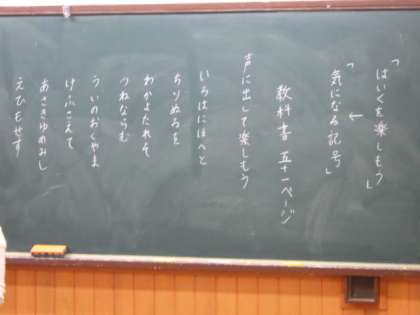 「はいくを楽しもう」
←
「気になる記号」
教科書 五十一ページ
声に出して楽しもう
いろはにほへと
ちりぬるを
わかよたれそ
つねならむ
うゐのおくやま
けふこえて
あさきゆめみし
ゑひもせす